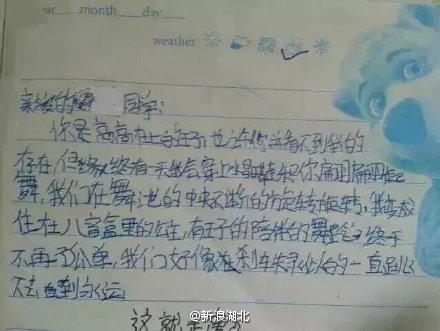 ear month day
weather
亲爱的 同学:
你是高高在上的王子,也许你并看不到我的
存在,但终有一天我会穿上水晶鞋和你翩翩起
舞,我们在舞池的中央不断的旋转旋转,我就像
住在八音盒里的公主,有王子的陪伴的舞 终于
不再孤单,我们好像 刹车失灵似的一直
下去 到永远
这就
@新浪湖北